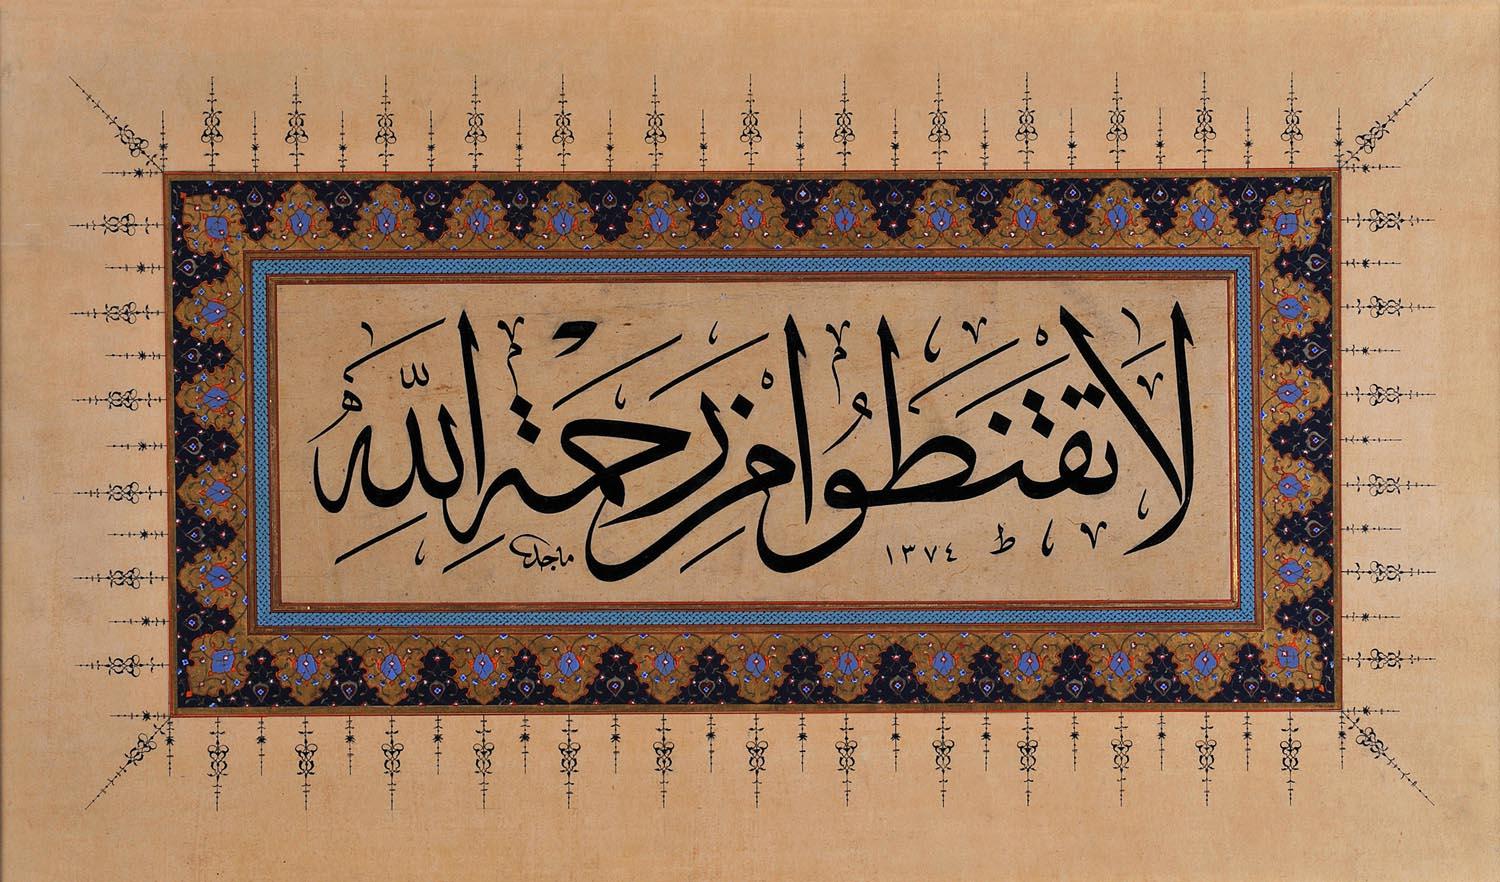 لَا تَقْنَطُوا مِنْ رَحْمَةِ اللَّهِ
ماجد ١٣٧٤